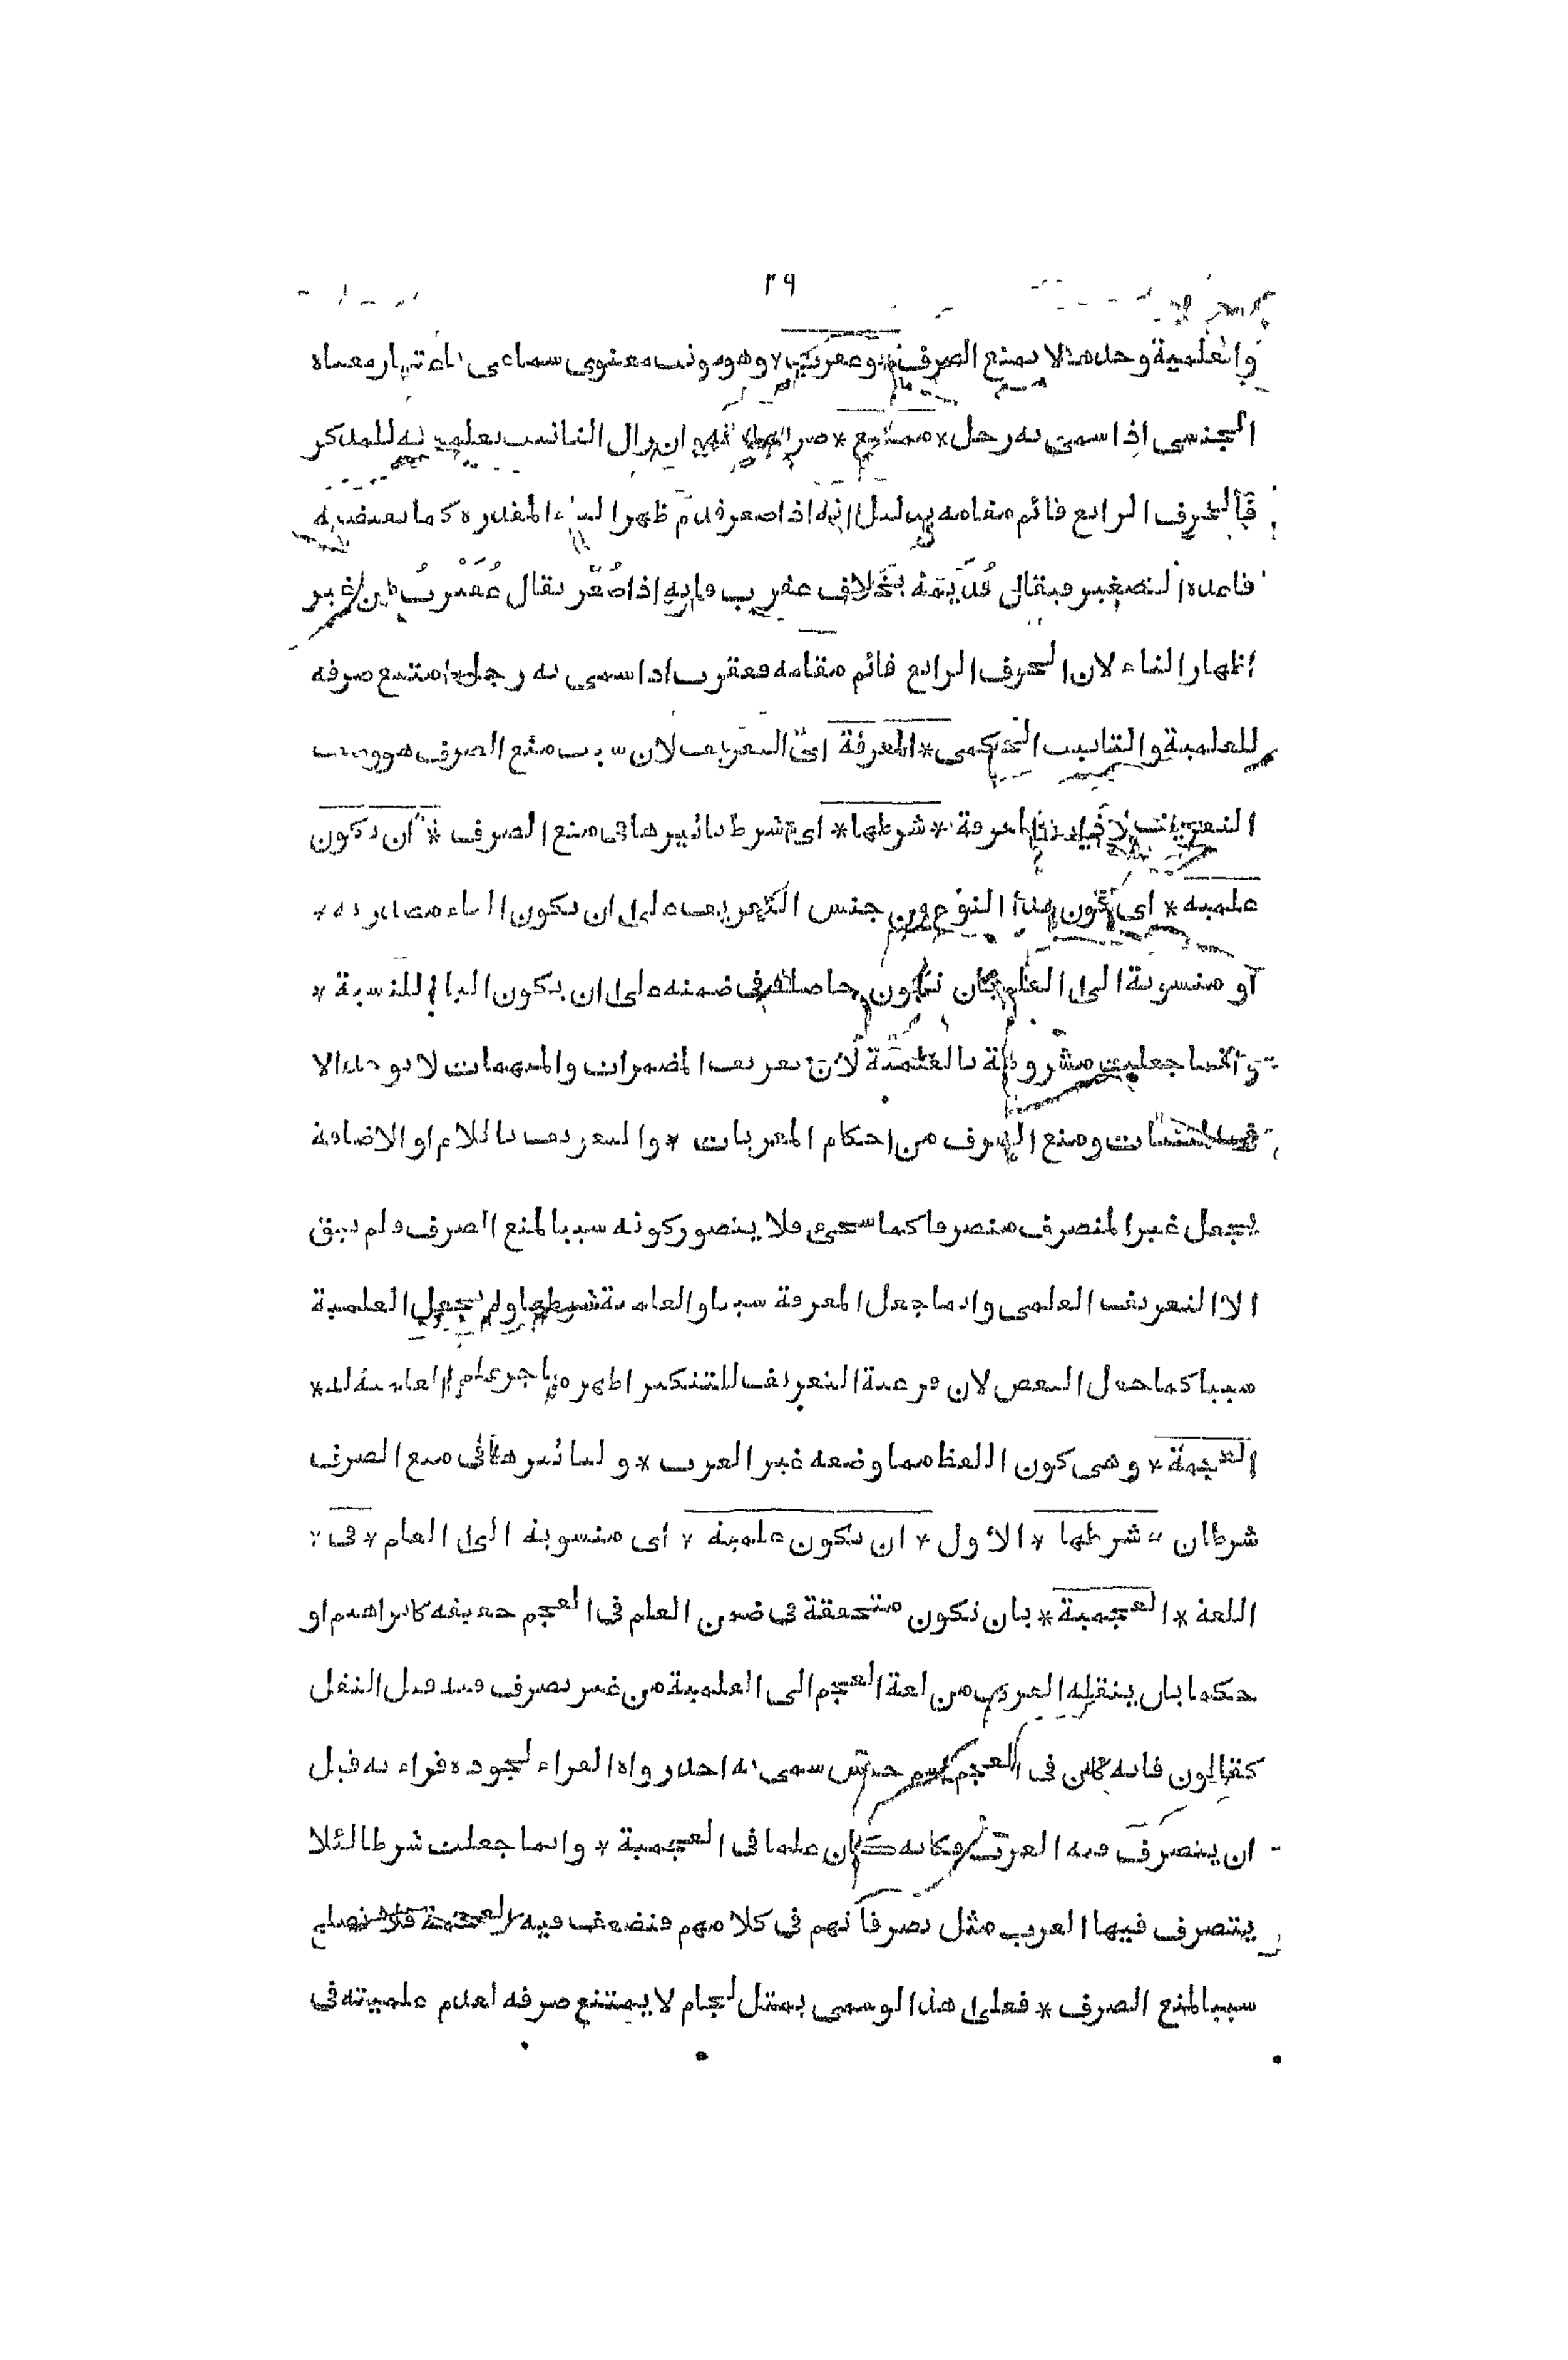 ٢٩
والعلمية وحدها لا تمنع الصرف * وعقرب * وهو مونث معنوى سماعى باعتبار معناه
الجنسى اذا سمى به رجل * ممتنع * صرفها ان زال التانيث بعلميته للمذكر
فالحرف الرابع قائم مقامه بدليل انه اذا صغر قدم ظهر التاء المقدره كما يقتضيه
قاعده التصغير فيقال قُدَيْمَة بخلاف عقرب فانه اذا صُغّر يقال عُقَيْرِبُ من غير
اظهار التاء لان الحرف الرابع قائم مقامه فعقرب اذا سمى به رجل امتنع صرفه
للعلمية والتانيث الحكمى * المعرفة اى التعريف لان سبب منع الصرف هو وصف
التعريف لا ذات المعرفة * شرطها * اى شرط تاثيرها فى منع الصرف * ان تكون
علميه * اى تكون هذا النوع من جنس التعريف على ان يكون الياء مصدريه *
او منسوبة الى العلم بان تكون حاصلة فى ضمنه على ان يكون الياء للنسبة *
وانما جعلت مشروطة بالعلمية لان تعريف المضمرات والمبهمات لا يوجد الا
فى المبنيات ومنع الصرف من احكام المعربات * والتعريف باللام او الاضافة
يجعل غير المنصرف منصرفا كما سيجئ فلا يتصور كونه سببا لمنع الصرف فلم يبق
الا التعريف العلمى وانما جعل المعرفة سببا والعلمية شرطها ولم يجعل العلمية
سببا كما جعل البعض لان فرعية التعريف للتنكير اظهر من فرعية العلمية له *
العجمة * وهى كون اللفظ مما وضعه غير العرب * ولتاثيرها فى منع الصرف
شرطان * شرطها * الاول * ان تكون علمية * اى منسوبة الى العلم * فى *
اللغة * العجمية * بان تكون متحققة فى ضمن العلم فى العجم حقيقه كابراهيم او
حكما بان ينقله العرب من لغة العجم الى العلمية من غير تصرف فيه قبل النقل
كقالون فانه كان فى العجم اسم جنس سمى به احد رواه القراء لجوده قراءته قبل
ان يتصرف فيه العرب فكانه كان علما فى العجمية * وانما جعلت شرطا لئلا
يتصرف فيها العرب مثل تصرفاتهم فى كلامهم فتضعف فيه العجمة فلا تصلح
سببا لمنع الصرف * فعلى هذا لو سمى بمثل لجام لا يمتنع صرفه لعدم علميته فى